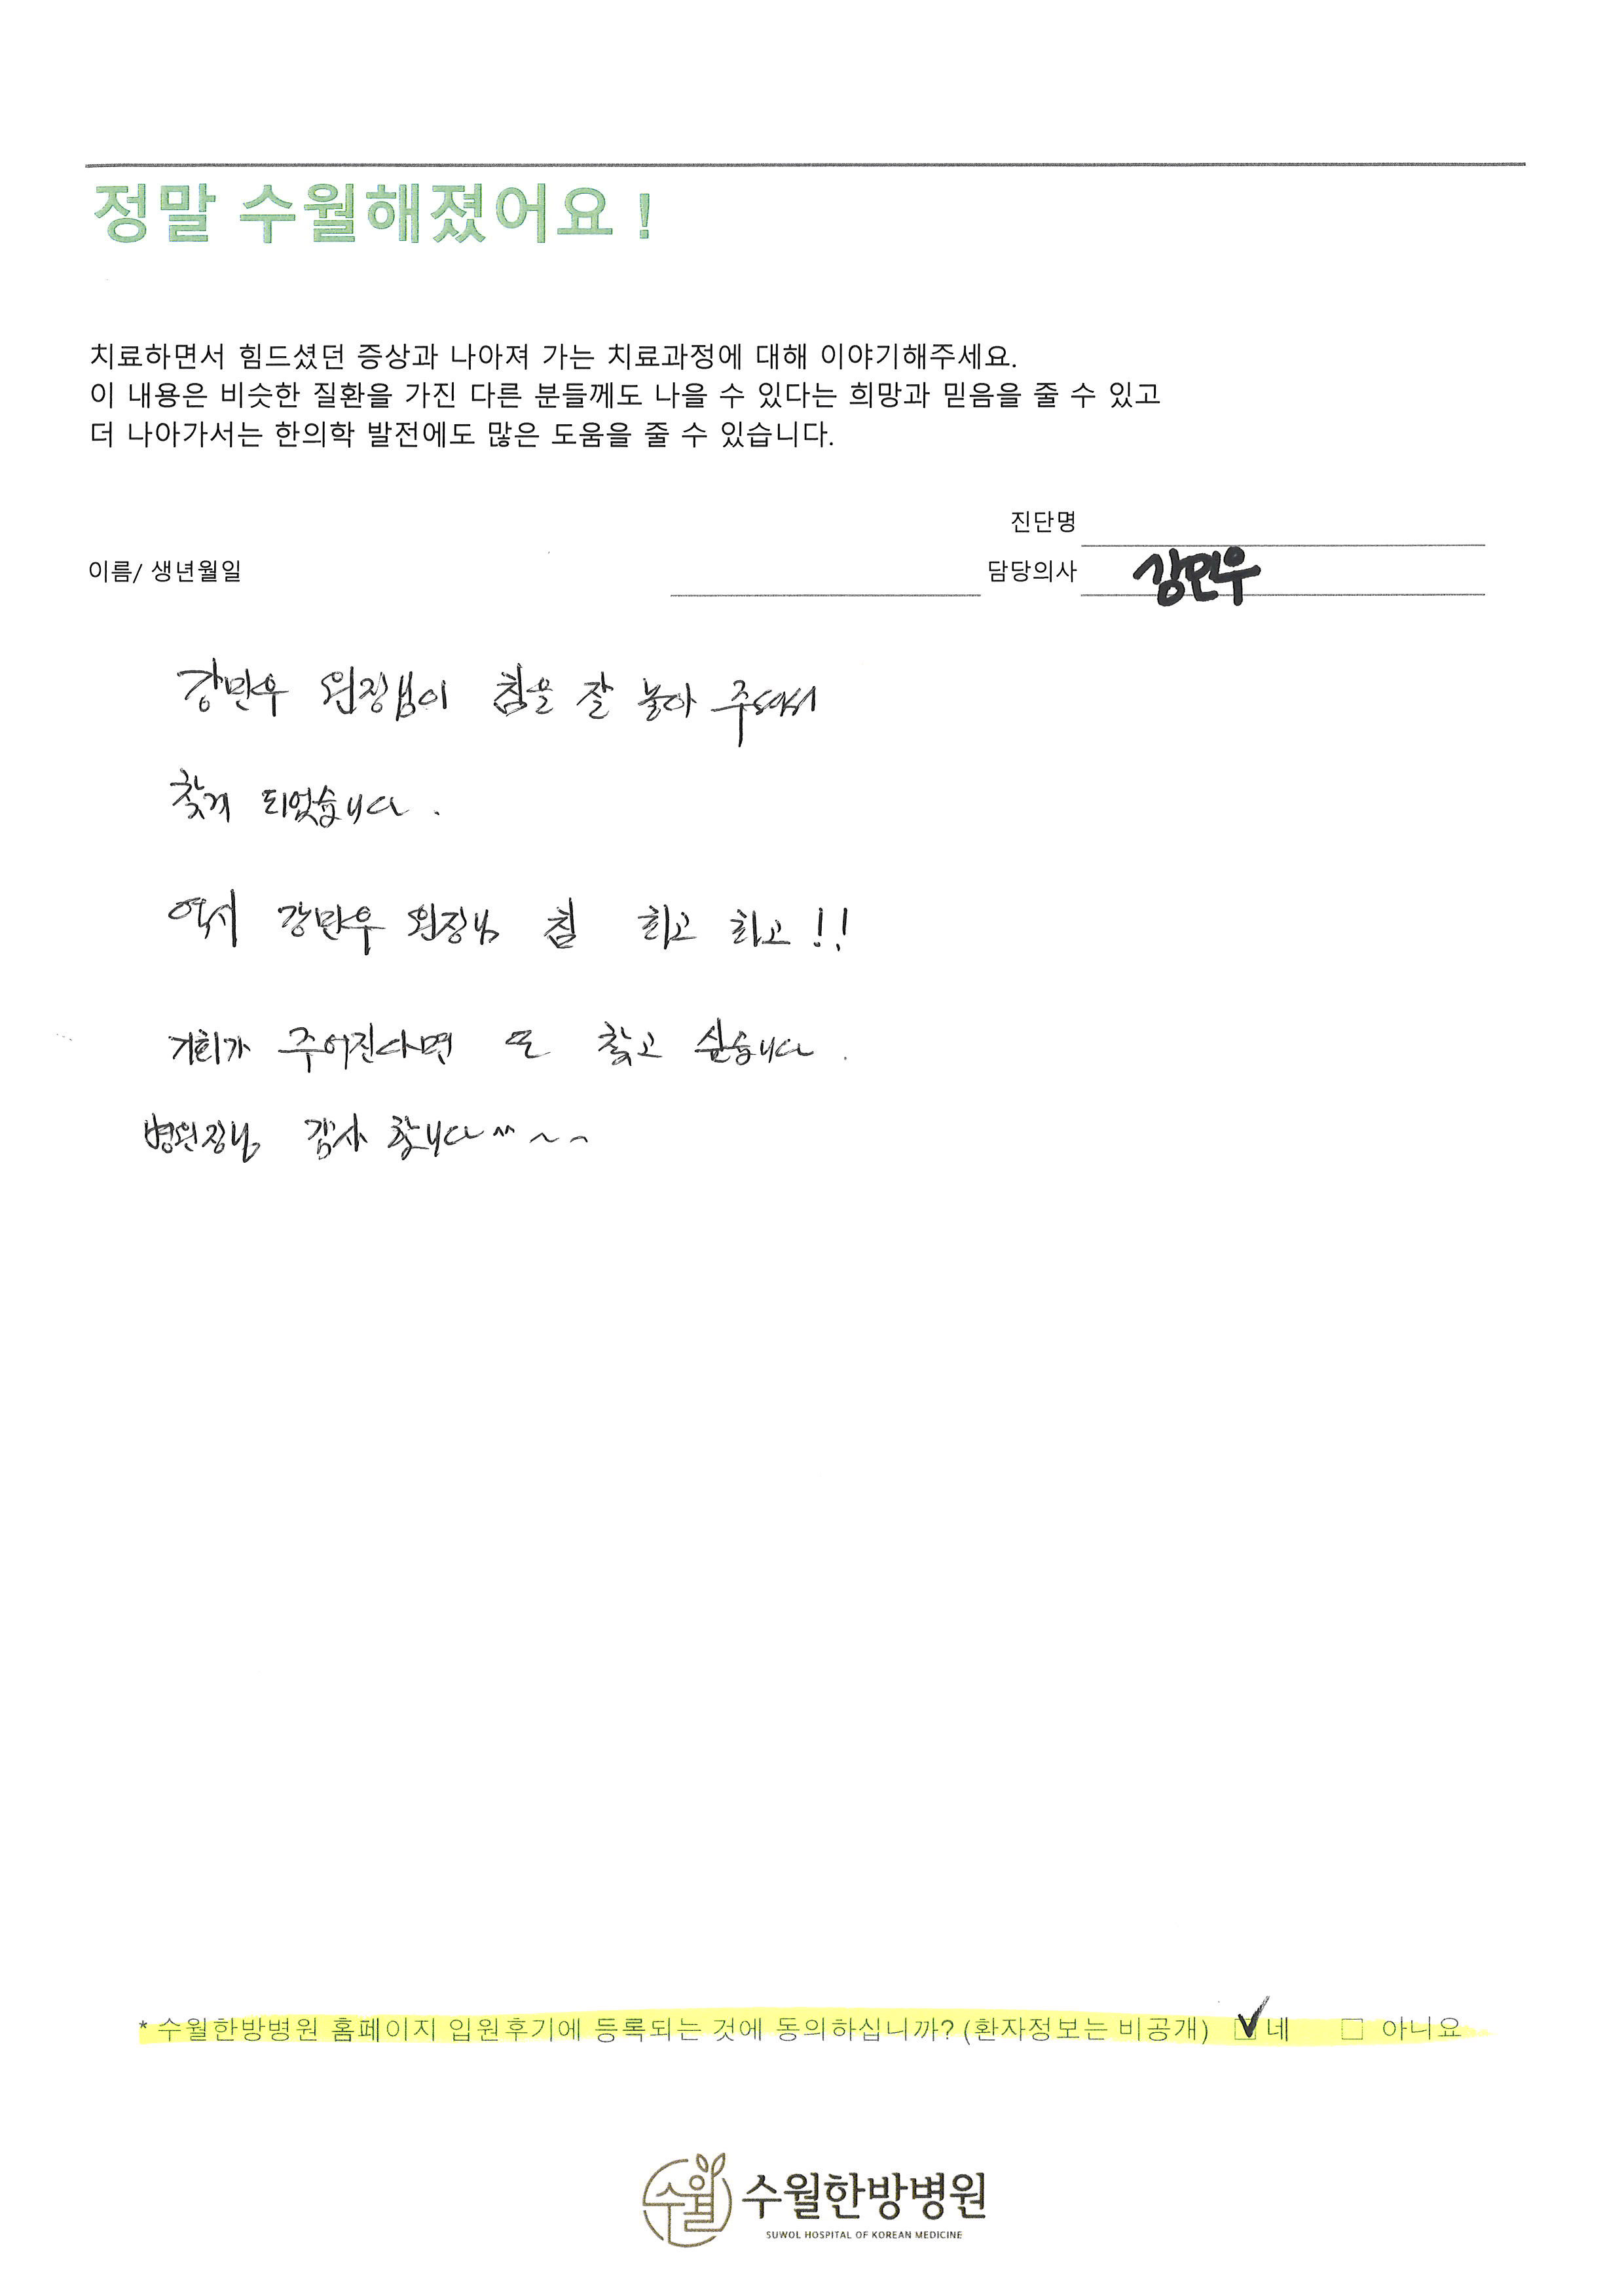 정말 수월해졌어요 !
치료하면서 힘드셨던 증상과 나아져 가는 치료과정에 대해 이야기해주세요.
이 내용은 비슷한 질환을 가진 다른 분들께도 나을 수 있다는 희망과 믿음을 줄 수 있고
더 나아가서는 한의학 발전에도 많은 도움을 줄 수 있습니다.
진단명
이름/ 생년월일 담당의사 강민우
강민우 원장님이 침을 잘 놓아 주셔서
찾게 되었습니다 .
역시 강민우 원장님 침 최고 최고 !!
기회가 주어진다면 또 찾고 싶습니다 .
병원장님 감사 합니다 ^^ ~ ~
* 수월한방병원 홈페이지 입원후기에 등록되는 것에 동의하십니까? (환자정보는 비공개) 네 아니요
수월 수월한방병원
SUWOL HOSPITAL OF KOREAN MEDICINE